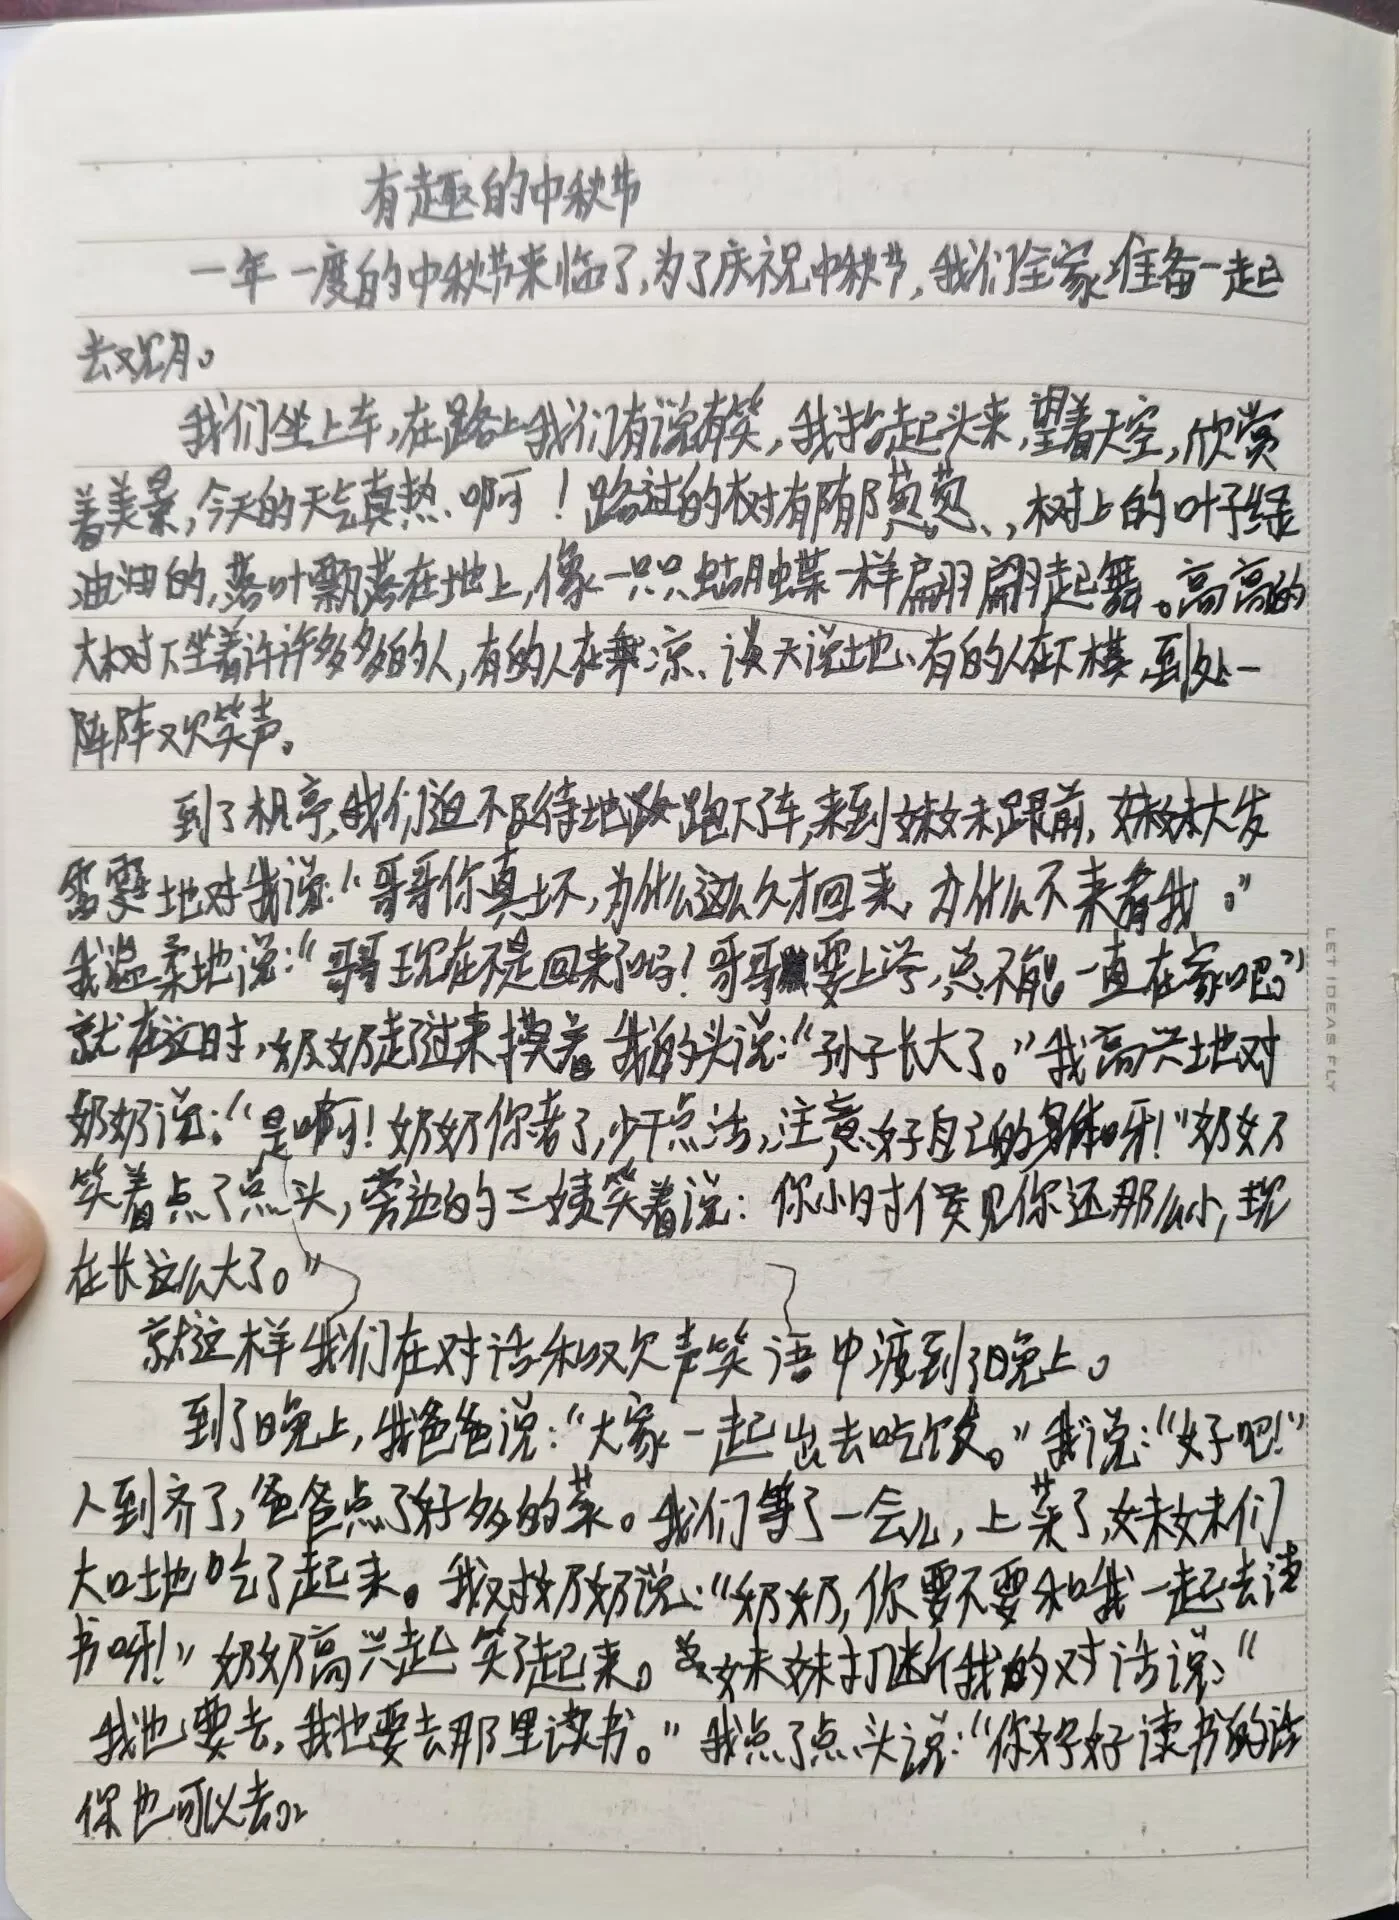 有趣的中秋节
一年一度的中秋节来临了,为了庆祝中秋节,我们全家准备一起
去观月。
我们坐上车,在路上我们有说有笑,我抬起头来,望着天空,欣赏
着美景,今天的天气真热啊!路过的树有郁郁葱葱、,树上的叶子绿
油油的,落叶飘落在地上,像一只只蝴蝶一样翩翩起舞。高高的
大树下坐着许许多多的人,有的人在乘凉、谈天说地、有的人在下棋,到处一
阵阵欢笑声。
到了机亭,我们迫不及待地跑下了车,来到妹妹跟前,妹妹大发
雷霆地对我说:“哥哥你真坏,为什么这么久才回来,为什么不来看我。”
我温柔地说:“哥哥现在不是回来了吗!哥哥要上学,总不能一直在家吧。”
就在这时,奶奶走了过来摸着我的头说:“孙子长大了。”我高兴地对
奶奶说:“是啊!奶奶你老了,少干点活,注意好自己的身体呀!”奶奶
笑着点了点头,旁边的三姨笑着说:你小时候见你还那么小,现
在长这么大了。”
就这样我们在对话和欢声笑语中渡到了晚上。
到了晚上,我爸爸说:“大家一起出去吃饭。”我说:“好吧!”
人到齐了,爸爸点了好多的菜。我们等了一会儿,上菜了,妹妹们
大口地吃了起来。我对奶奶说:“奶奶,你要不要和我一起去读
书呀!”奶奶高兴起笑了起来。妹妹打断我的对话说:“
我也要去,我也要去那里读书。”我点了点头说:“你好好读书的话
你也可以去。”
LET IDEAS FLY